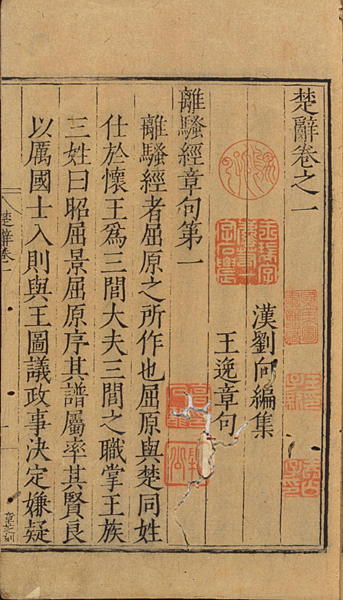 楚辭卷之一
漢劉向編集
王逸章句
離騷經章句第一
離騷經者屈原之所作也屈原與楚同姓
仕於懷王爲三閭大夫三閭之職掌王族
三姓曰昭屈景屈原序其譜屬率其賢良
以厲國士入則與王圖議政事決定嫌疑
楚辭卷一